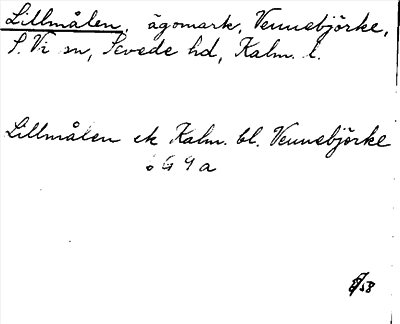 Lillmålen, ägomark, Vennebjörke,
S. Vi sn, Sevede hd, Kalm. l.
Lillmålen ek Kalm. bl. Vennebjörke
ö G 9 a
58